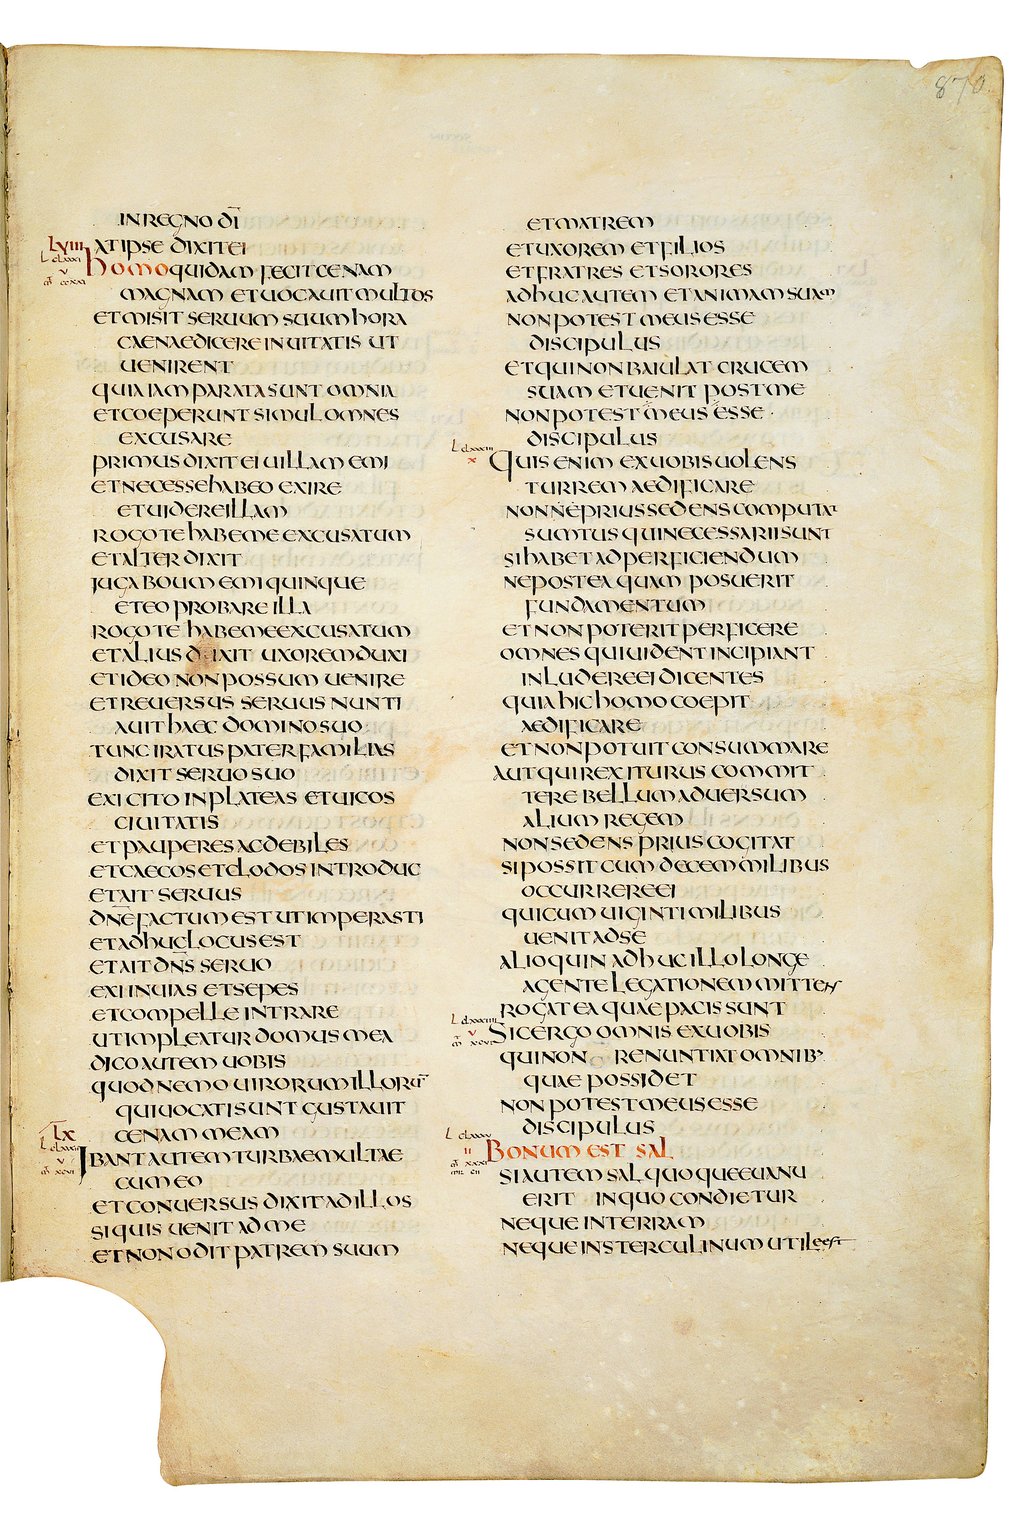 870
IN REGNO DĪ
LVIIII AT IPSE DIXIT EI
L CLXXXI
V
HOMO QUIDAM FECIT CENAM
MAGNAM ET UOCAUIT MULTOS
ET MISIT SERUUM SUUM HORA
CAENAE DICERE INUITATIS UT
UENIRENT
QUIA IAM PARATA SUNT OMNIA
ET COEPERUNT SIMUL OMNES
EXCUSARE
PRIMUS DIXIT EI UILLAM EMI
ET NECESSE HABEO EXIRE
ET UIDERE ILLAM
ROGO TE HABE ME EXCUSATUM
ET ALTER DIXIT
IUGA BOUM EMI QUINQUE
ET EO PROBARE ILLA
ROGO TE HABE ME EXCUSATUM
ET ALIUS DIXIT UXOREM DUXI
ET IDEO NON POSSUM UENIRE
ET REUERSUS SERUUS NUNTI
AUIT HAEC DOMINO SUO
TUNC IRATUS PATER FAMILIAS
DIXIT SERUO SUO
EXI CITO IN PLATEAS ET UICOS
CIUITATIS
ET PAUPERES AC DEBILES
ET CAECOS ET CLODOS INTRODUC
ET AIT SERUUS
DN̄E FACTUM EST UT IMPERASTI
ET ADHUC LOCUS EST
ET AIT DN̄S SERUO
EXI IN UIAS ET SEPES
ET COMPELLE INTRARE
UT IMPLEATUR DOMUS MEA
DICO AUTEM UOBIS
QUOD NEMO UIRORUM ILLORŪ
QUI UOCATI SUNT GUSTAUIT
LX CENAM MEAM
L CLXXXII
V
IBANT AUTEM TURBAE MULTAE
CUM EO
ET CONUERSUS DIXIT AD ILLOS
SI QUIS UENIT AD ME
ET NON ODIT PATREM SUUM
ET MATREM
ET UXOREM ET FILIOS
ET FRATRES ET SORORES
ADHUC AUTEM ET ANIMAM SUAM
NON POTEST MEUS ESSE
DISCIPULUS
ET QUI NON BAIULAT CRUCEM
SUAM ET UENIT POST ME
NON POTEST MEUS ESSE
DISCIPULUS
L CLXXXIII
X
QUIS ENIM EX UOBIS UOLENS
TURREM AEDIFICARE
NONNE PRIUS SEDENS COMPUTAT
SUMTUS QUI NECESSARII SUNT
SI HABET AD PERFICIENDUM
NE POSTEA QUAM POSUERIT
FUNDAMENTUM
ET NON POTERIT PERFICERE
OMNES QUI UIDENT INCIPIANT
INLUDERE EI DICENTES
QUIA HIC HOMO COEPIT
AEDIFICARE
ET NON POTUIT CONSUMMARE
AUT QUI REX ITURUS COMMIT
TERE BELLUM ADUERSUM
ALIUM REGEM
NON SEDENS PRIUS COGITAT
SI POSSIT CUM DECEM MILIBUS
OCCURRERE EI
QUI CUM UIGINTI MILIBUS
UENIT AD SE
ALIOQUIN ADHUC ILLO LONGE
AGENTE LEGATIONEM MITTENS
ROGAT EA QUAE PACIS SUNT
L CLXXXIIII
V
SIC ERGO OMNIS EX UOBIS
QUI NON RENUNTIAT OMNIB·
QUAE POSSIDET
NON POTEST MEUS ESSE
DISCIPULUS
L CLXXXV
II
BONUM EST SAL
SI AUTEM SAL QUOQUE EUANU
ERIT IN QUO CONDIETUR
NEQUE IN TERRAM
NEQUE IN STERCULINUM UTILE EST